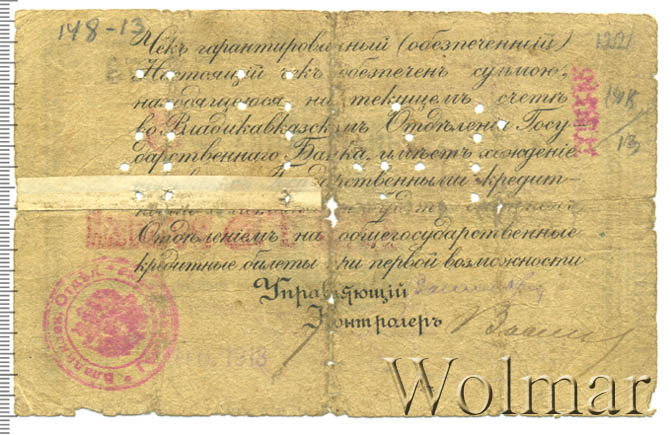 148-13
Чекъ гарантированный (обезпеченный)
Настоящій чекъ обезпеченъ суммою,
находящеюся на текущемъ счетѣ
во Владикавказскомъ Отдѣленіи Госу
дарственнаго Банка, имѣетъ хожденіе
дарственными кредит-
Отдѣленіемъ на общегосударственные
кредитные билеты при первой возможности
Управляющій
Контролеръ
148
13
1918
Wolmar